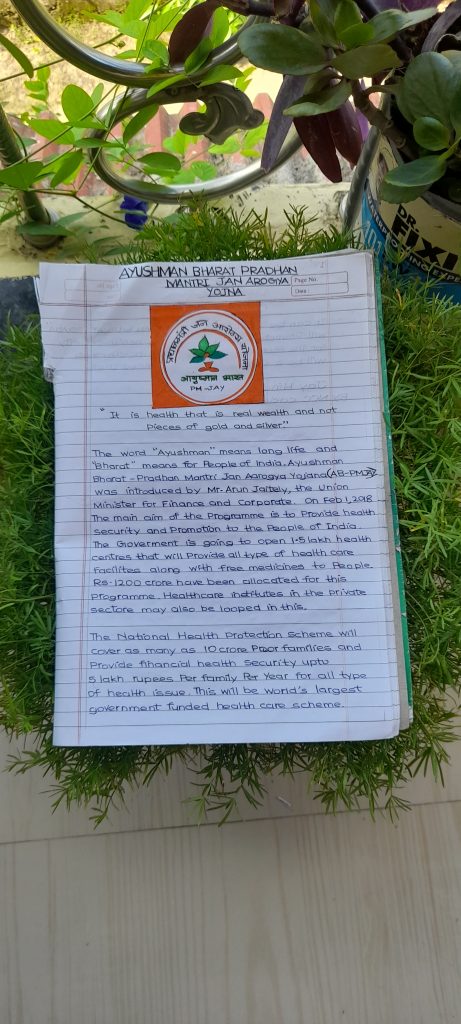 AYUSHMAN BHARAT PRADHAN
MANTRI JAN AROGYA
YOJNA
Page No.
Date
प्रधानमंत्री जन आरोग्य योजना
आयुष्मान भारत
PM-JAY
"It is health that is real wealth and not
Pieces of gold and silver"
The word "Ayushman" means long life and
"Bharat" means for People of India. Ayushman
Bharat - Pradhan Mantri Jan Aarogya Yojana (AB-PMJAY)
was introduced by Mr. Arun Jaitely, the Union
Minister for Finance and Corporate. On Feb 1, 2018
The main aim of the Programme is to Provide health
security and Promotion to the People of India.
The Goverment is going to open 1.5 lakh health
centres that will Provide all type of health care
facilites along with free medicines to People.
Rs. 1200 crore have been allocated for this
Programme. Healthcare institutes in the Private
sectore may also be looped in this.
The National Health Protection Scheme will
cover as many as 10 crore Poor families and
Provide financial health security upto
5 lakh rupees Per family Per Year for all type
of health issue. This will be world's largest
government funded health care scheme.
DR.
FIXI